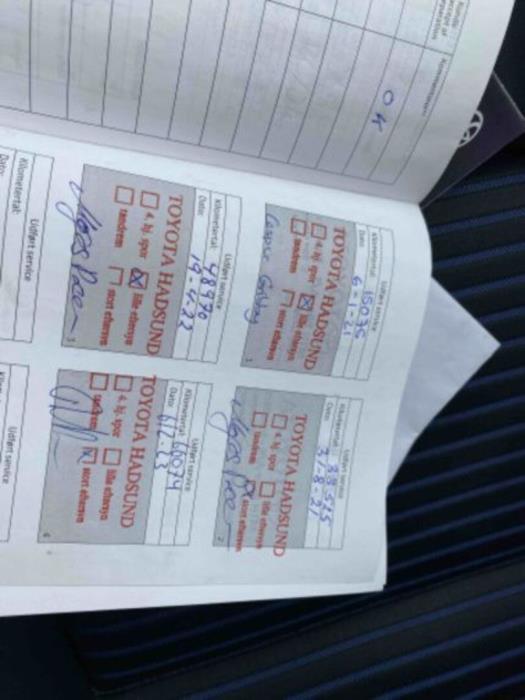 Kommentarer
OK
Udført service
Kilometertal: 15035
Dato: 6-1-21
TOYOTA HADSUND
4. hj. spor
lille eftersyn
tandrem
stort eftersyn
1
Udført service
Kilometertal: 33525
Dato: 31-8-21
TOYOTA HADSUND
4. hj. spor
lille eftersyn
tandrem
stort eftersyn
2
Udført service
Kilometertal: 48970
Dato:
TOYOTA HADSUND
4. hj. spor
lille eftersyn
tandrem
stort eftersyn
3
Udført service
Kilometertal:
Dato:
TOYOTA HADSUND
4. hj. spor
lille eftersyn
tandrem
stort eftersyn
Udført service
Kilometertal:
Dato:
Udført service